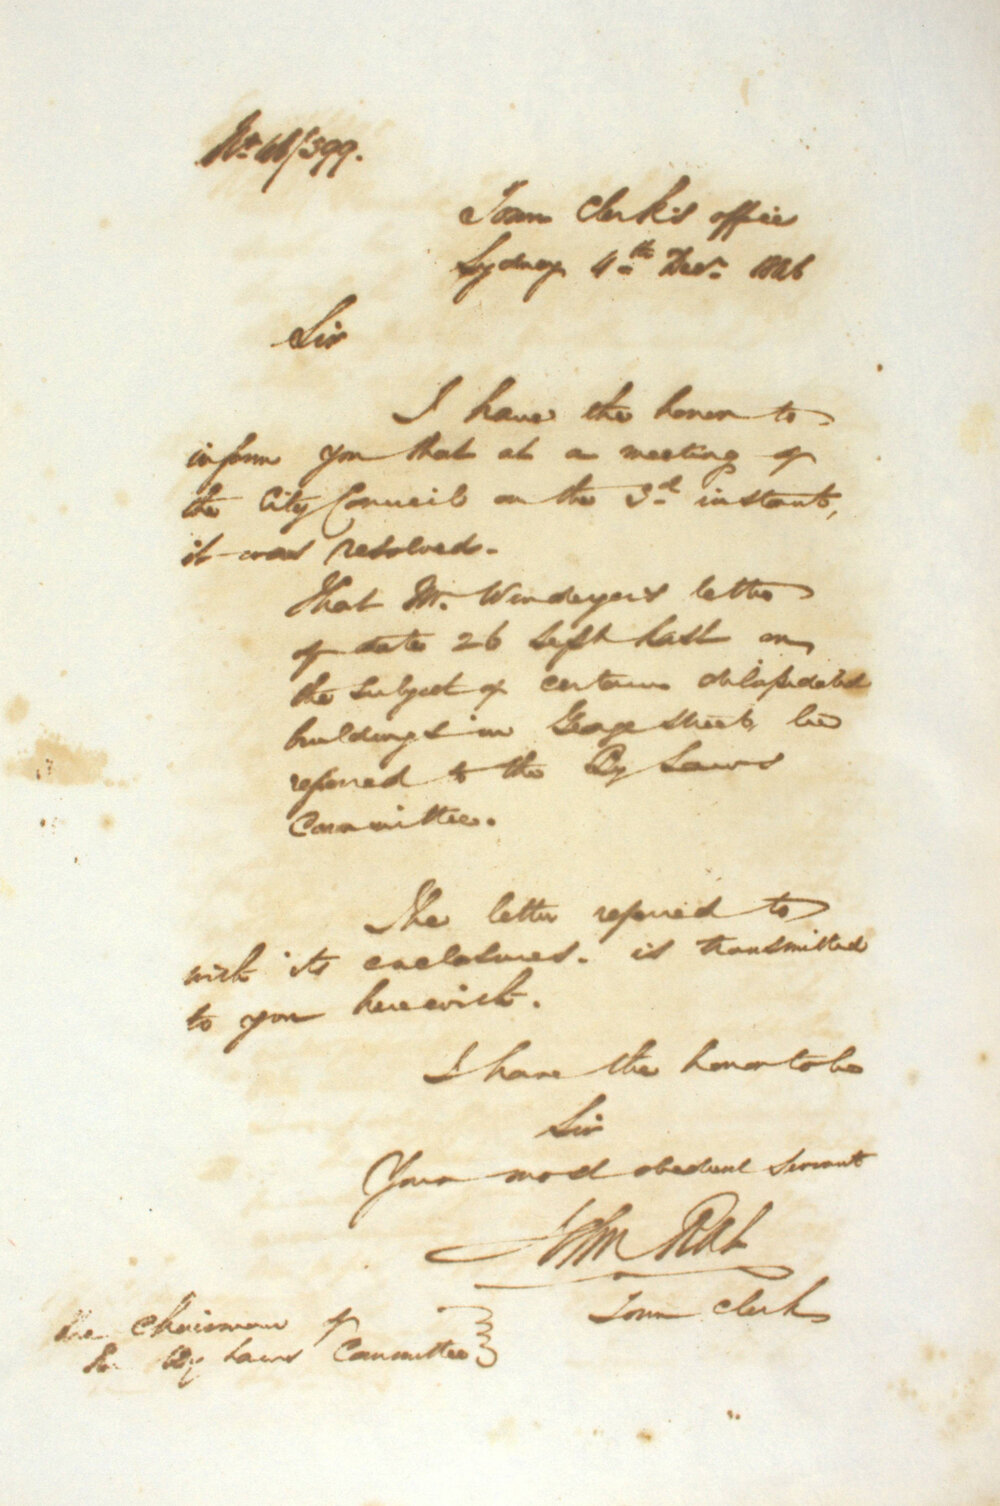 No. 46/399.
Town Clerk's office
Sydney 4th Decr. 1846
Sir
I have the honor to
inform you that at a meeting of
the City Council on the 3rd instant,
it was resolved.
That Mr. Windeyer's letter
of date 26 Sept last on
the subject of certain dilapidated
buildings in George Street, be
referred to the By Laws
Committee.
The letter referred to
with its enclosures. is transmitted
to you herewith.
I have the honor to be
Sir
Your most obedient servant
John Rae
Town Clerk
The Chairman of
the By Laws Committee